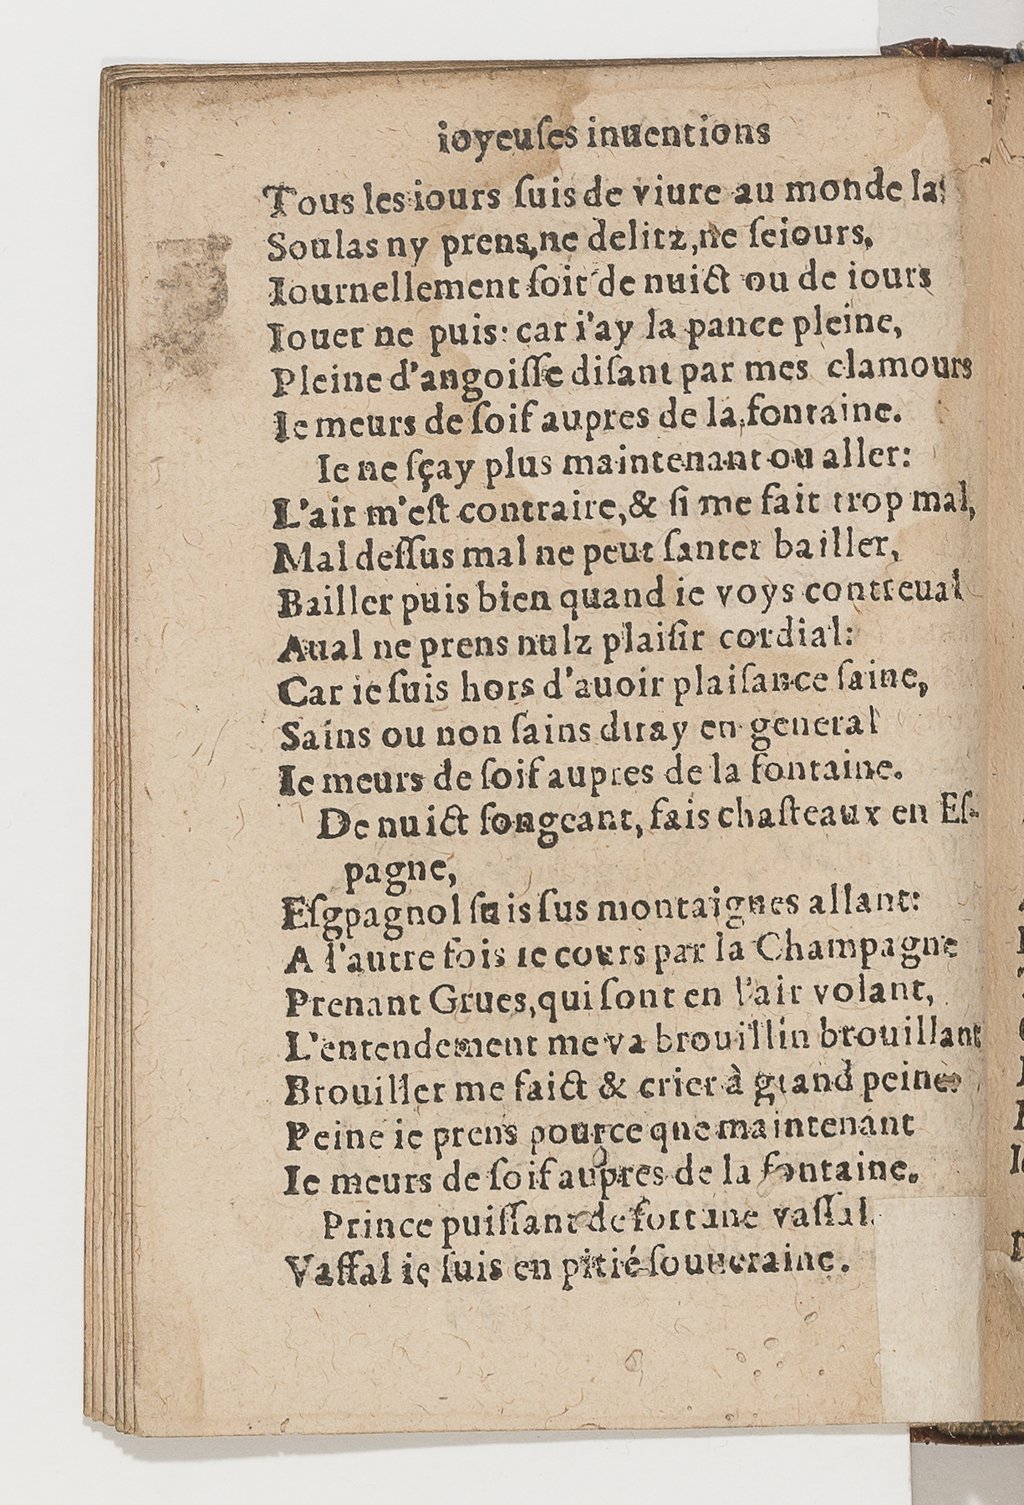 ioyeuſes inuentions
Tous les iours ſuis de viure au monde las
Soulas ny prens, ne delitz, ne ſeiours,
Iournellement ſoit de nuict ou de iours
Iouer ne puis: car i'ay la pance pleine,
Pleine d'angoiſſe diſant par mes clamours
Ie meurs de ſoif aupres de la fontaine.
Ie ne ſçay plus maintenant ou aller:
L'air m'eſt contraire, & ſi me fait trop mal,
Mal deſſus mal ne peut ſanter bailler,
Bailler puis bien quand ie voys contreual
Aual ne prens nulz plaiſir cordial:
Car ie ſuis hors d'auoir plaiſance ſaine,
Sains ou non ſains diray en general
Ie meurs de ſoif aupres de la fontaine.
De nuict ſongeant, fais chaſteaux en Eſ-
pagne,
Eſgpagnol ſuis ſus montaignes allant:
A l'autre fois ie cours par la Champagne
Prenant Grues, qui ſont en l'air volant,
L'entendement me va brouillin brouillant
Brouiller me faict & crier à grand peine:
Peine ie prens pource que maintenant
Ie meurs de ſoif aupres de la fontaine.
Prince puiſſant de fortune vaſſal.
Vaſſal ie ſuis en pitié ſouueraine.